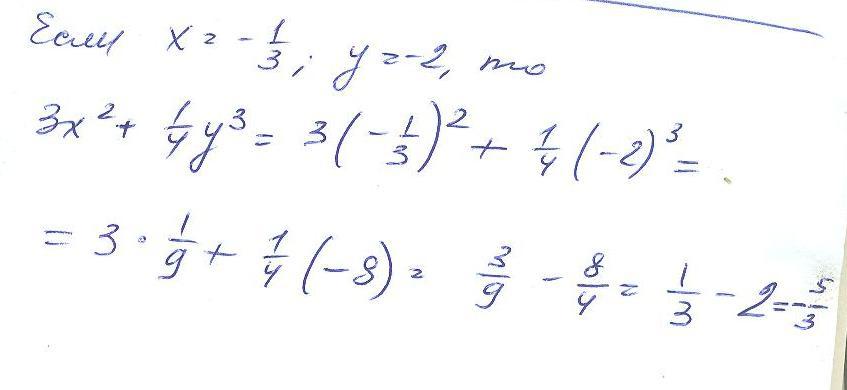 Если x = -1/3; y = -2, то
3x² + 1/4 y³ = 3(-1/3)² + 1/4 (-2)³ =
= 3 · 1/9 + 1/4 (-8) = 3/9 - 8/4 = 1/3 - 2 = -5/3